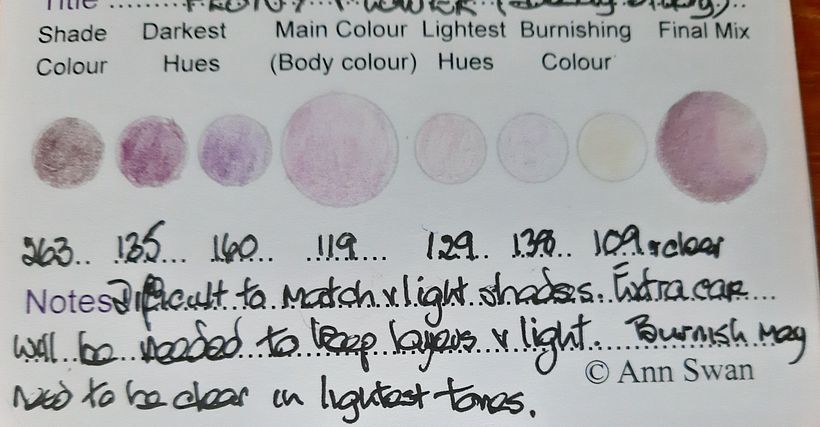 Title
Shade Darkest Main Colour Lightest Burnishing Final Mix
Colour Hues (Body colour) Hues Colour
263.. 135... 160.. 119... 129.. 138.. 109 + clear
Notes Difficult to match v light shades. Extra care
will be needed to keep layers v light. Burnish may
need to be clear in lightest tones.
© Ann Swan